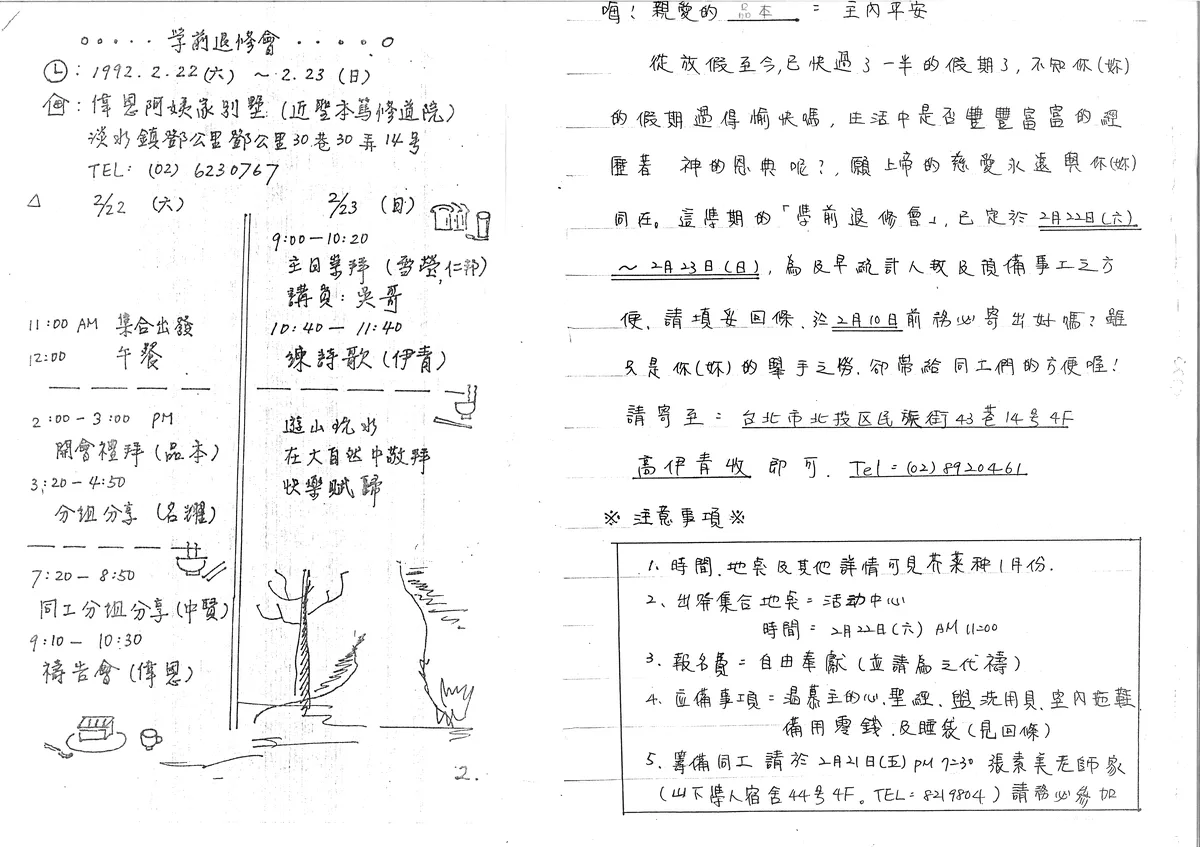 学前退修會
1992.2.22(六) ~ 2.23 (日)
: 偉恩阿姨家別墅 (近聖本篤修道院)
淡水鎮鄧公里鄧公里30巷30弄14号
TEL: (02) 6230767
△ 2/22 (六) 2/23 (日)
11:00 AM 集合出發
12:00 午餐
2:00-3:00 PM
開會禮拜 (品本)
3:20-4:50
分組分享 (名耀)
7:20-8:50
同工分組分享 (中賢)
9:10- 10:30
禱告會 (偉恩)
9:00-10:20
主日崇拜 (雪瑩,仁邦)
講員: 吳哥
10:40- 11:40
練詩歌 (伊青)
遊山玩水
在大自然中敬拜
快樂賦歸
2.
嗨! 親愛的 品本 = 主內平安
從放假至今,已快過了一半的假期了,不知你(妳)
的假期過得愉快嗎,生活中是否豐豐富富的經
歷著 神的恩典呢?,願上帝的慈愛永遠與你(妳)
同在。這學期的「學前退修會」,已定於2月22日(六)
~ 2月23日(日),為及早統計人数及預備事工之方
便、請填妥回條、於2月10日前務必寄出好嗎?雖
只是你(妳)的舉手之勞、卻帶給同工們的方便喔!
請寄至= 台北市北投区民族街43巷14号4F
高伊青收 即可. Tel=(02)8920461
※ 注意事項※
1、時間、地點及其他詳情可見芥菜种1月份.
2、出發集合地點=活动中心
時間= 2月22日(六) AM 11:00
3、報名費= 自由奉獻(並請為之代禱)
4、應備事項=渴慕主的心、聖經、盥洗用具、室內拖鞋
備用零錢、及睡袋(見回條)
5、籌備同工 請於 2月21日(五) pm 7=30 張素美老師家
(山下學人宿舍44号4F。TEL=8219804)請務必參加